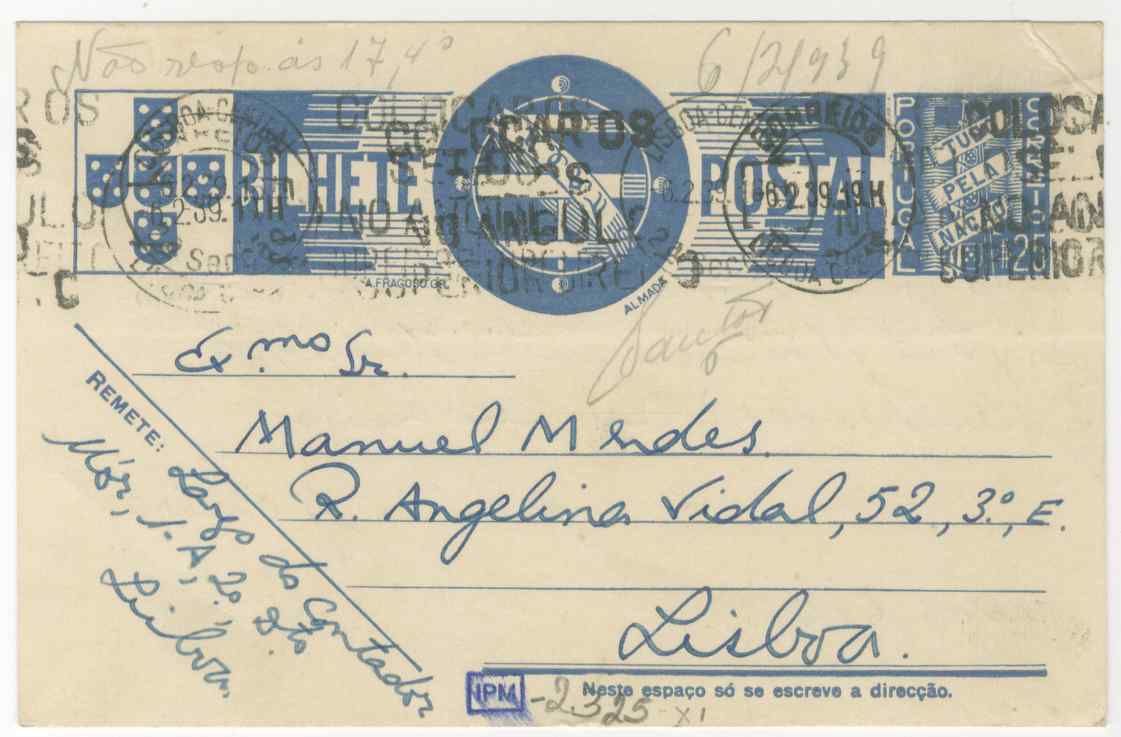 Não resp. às 17,4º
6/2/939
BILHETE POSTAL
PORTUGAL
CORREIO
TUDO
PELA
NAÇÃO
25
COLOCAR OS
SELOS
NO ANGULO
SUPERIOR DIREITO
LISBOA CENTRAL
CORREIOS
6.2.39.19H
A. FRAGOSO GR.
ALMADA
Santos
Ex.mo Sr.
Manuel Mendes
R. Angelina Vidal, 52, 3.º, E.
Lisboa.
REMETE:
Largo do Contador
Mór, 1-A, 2º Dto
Lisboa.
Neste espaço só se escreve a direcção.
IPM -2325-XI